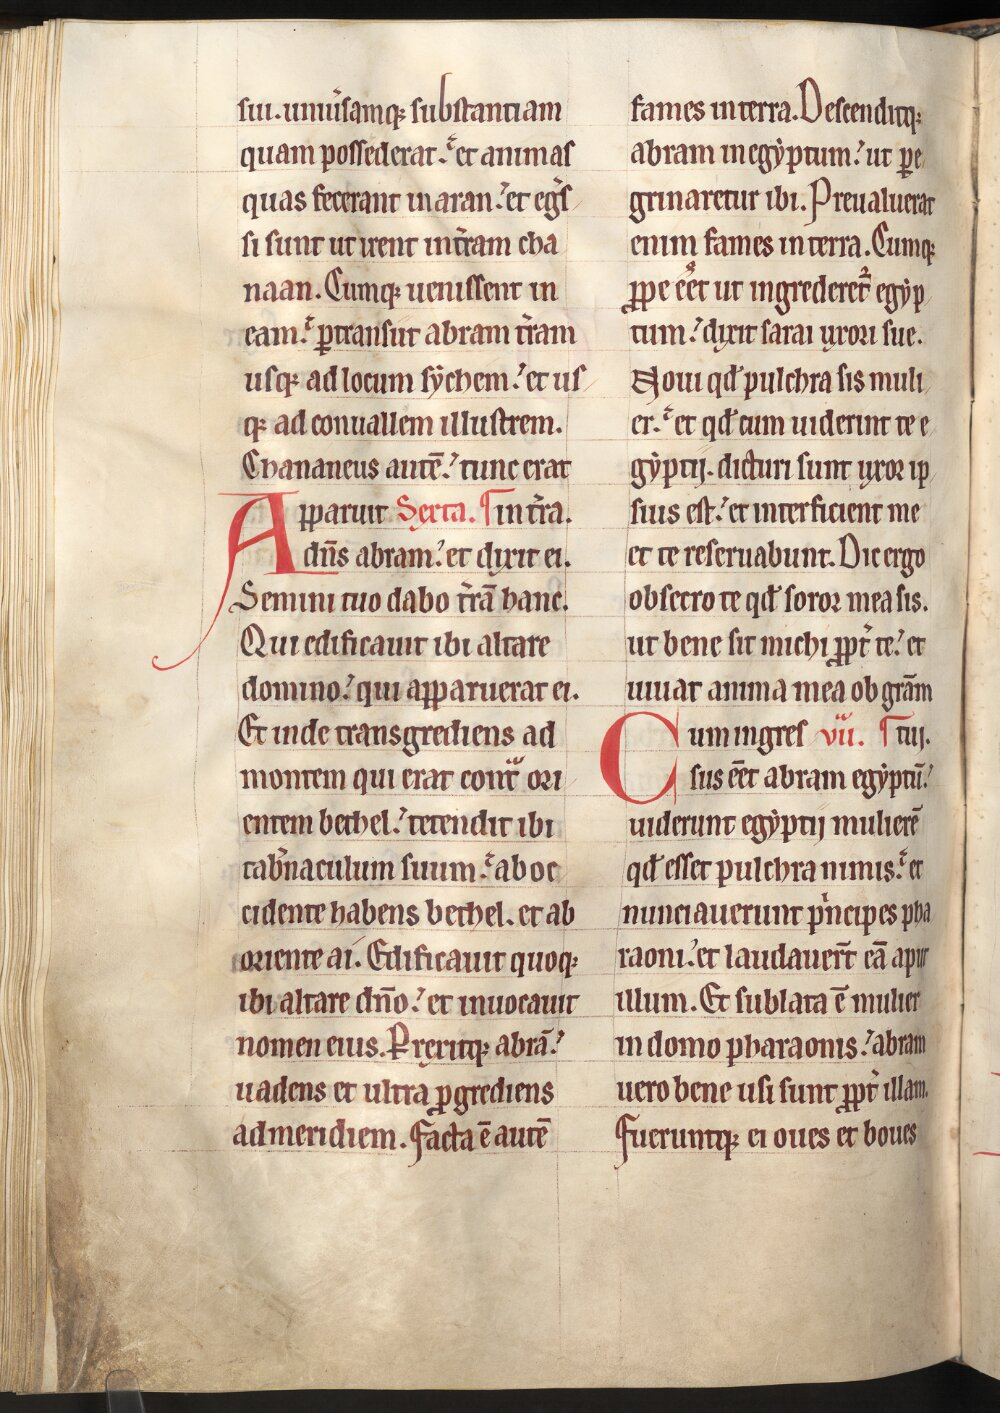 sui. uniũsamq; substantiam
quam possederat. et animas
quas fecerant in aran. et eg̃s
si sunt ut irent in t̃ram cha
naan. Cumq; uenissent in
eam. ꝑtransiit abram t̃ram
usq; ad locum sẏchem. et us
q; ad conuallem illustrem.
Chananeus autẽ. tunc erat
Apparuit Sexta. ¶ in t̃ra.
dñs abram. et dixit ei.
Semini tuo dabo t̃rã hanc.
Qui edificauit ibi altare
domino. qui apparuerat ei.
Et inde transgrediens ad
montem qui erat cont͛ ori
entem bethel. tetendit ibi
tab̃naculum suum. ab oc
cidente habens bethel. et ab
oriente ai. Edificauit quoq;
ibi altare dño. et inuocauit
nomen eius. Prexitq; abrã.
uadens et ultra ꝓgrediens
ad meridiem. Facta ẽ autẽ
fames in terra. Descenditq;
abram in egẏptum. ut ꝑe
grinaretur ibi. Preualuerat
enim fames in terra. Cumq;
ꝓpe eẽt ut ingrederet᷑ egẏp
tum. dixit sarai uxori sue.
Noui qđ pulchra sis muli
er. et qđ cum uiderint te e
gẏptij. dicturi sunt uxor ip
sius est. et interficient me
et te reseruabunt. Dic ergo
obsecro te qđ soror mea sis.
ut bene sit michi ꝓpt̃ te. et
uiuat anima mea ob grãm
Cum ingres vii. ¶ tui.
sus eẽt abram egẏptũ.
uiderunt egẏptij mulierẽ
qđ esset pulchra nimis. et
nunciauerunt pͥncipes pha
raoni. et laudauer̃t eã aput
illum. Et sublata ẽ mulier
in domo pharaonis. abram
uero bene usi sunt ꝓpt̃ illam.
Fueruntq; ei oues et boues